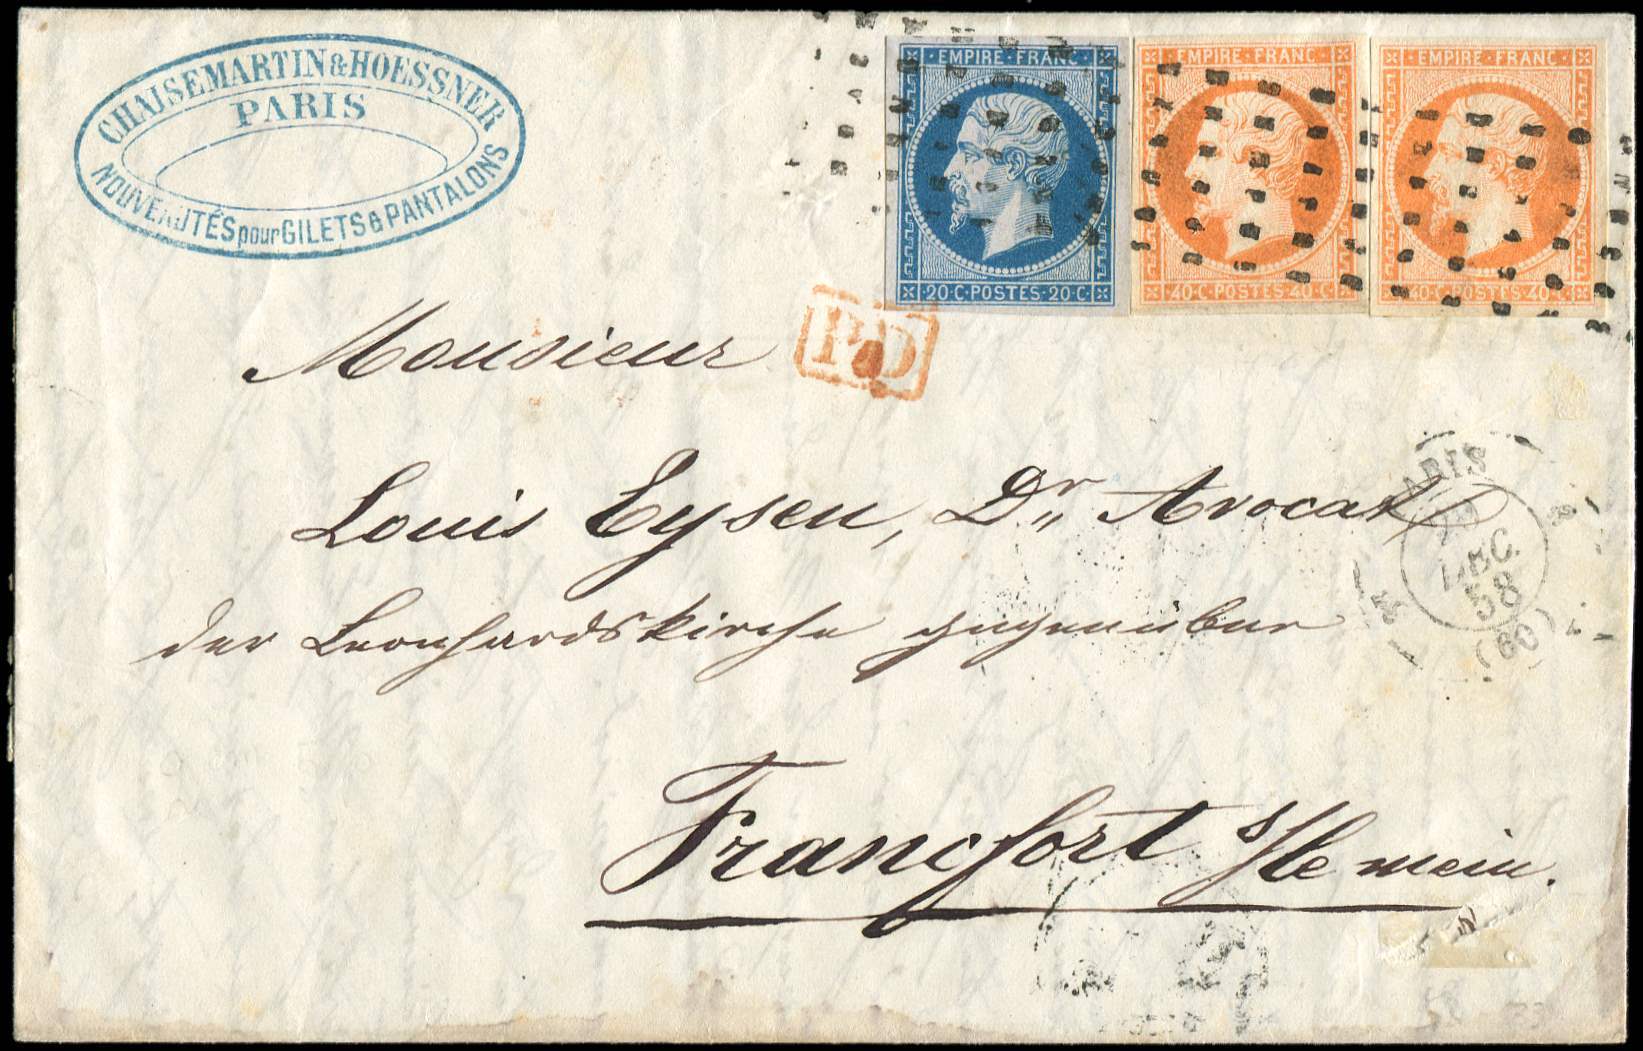 CHAISEMARTIN & HOESSNER
PARIS
NOUVEAUTÉS pour GILETS & PANTALONS
EMPIRE·FRANC·
20·C·POSTES·20·C·
EMPIRE·FRANC·
40·C·POSTES·40·C·
EMPIRE·FRANC·
40·C·POSTES·40·C·
P.D
Monsieur
Louis Eysen, Dr Avocat
der Leonhardskirche gegenüber
Francfort s/le mein.
PARIS
DEC.
58
(60)